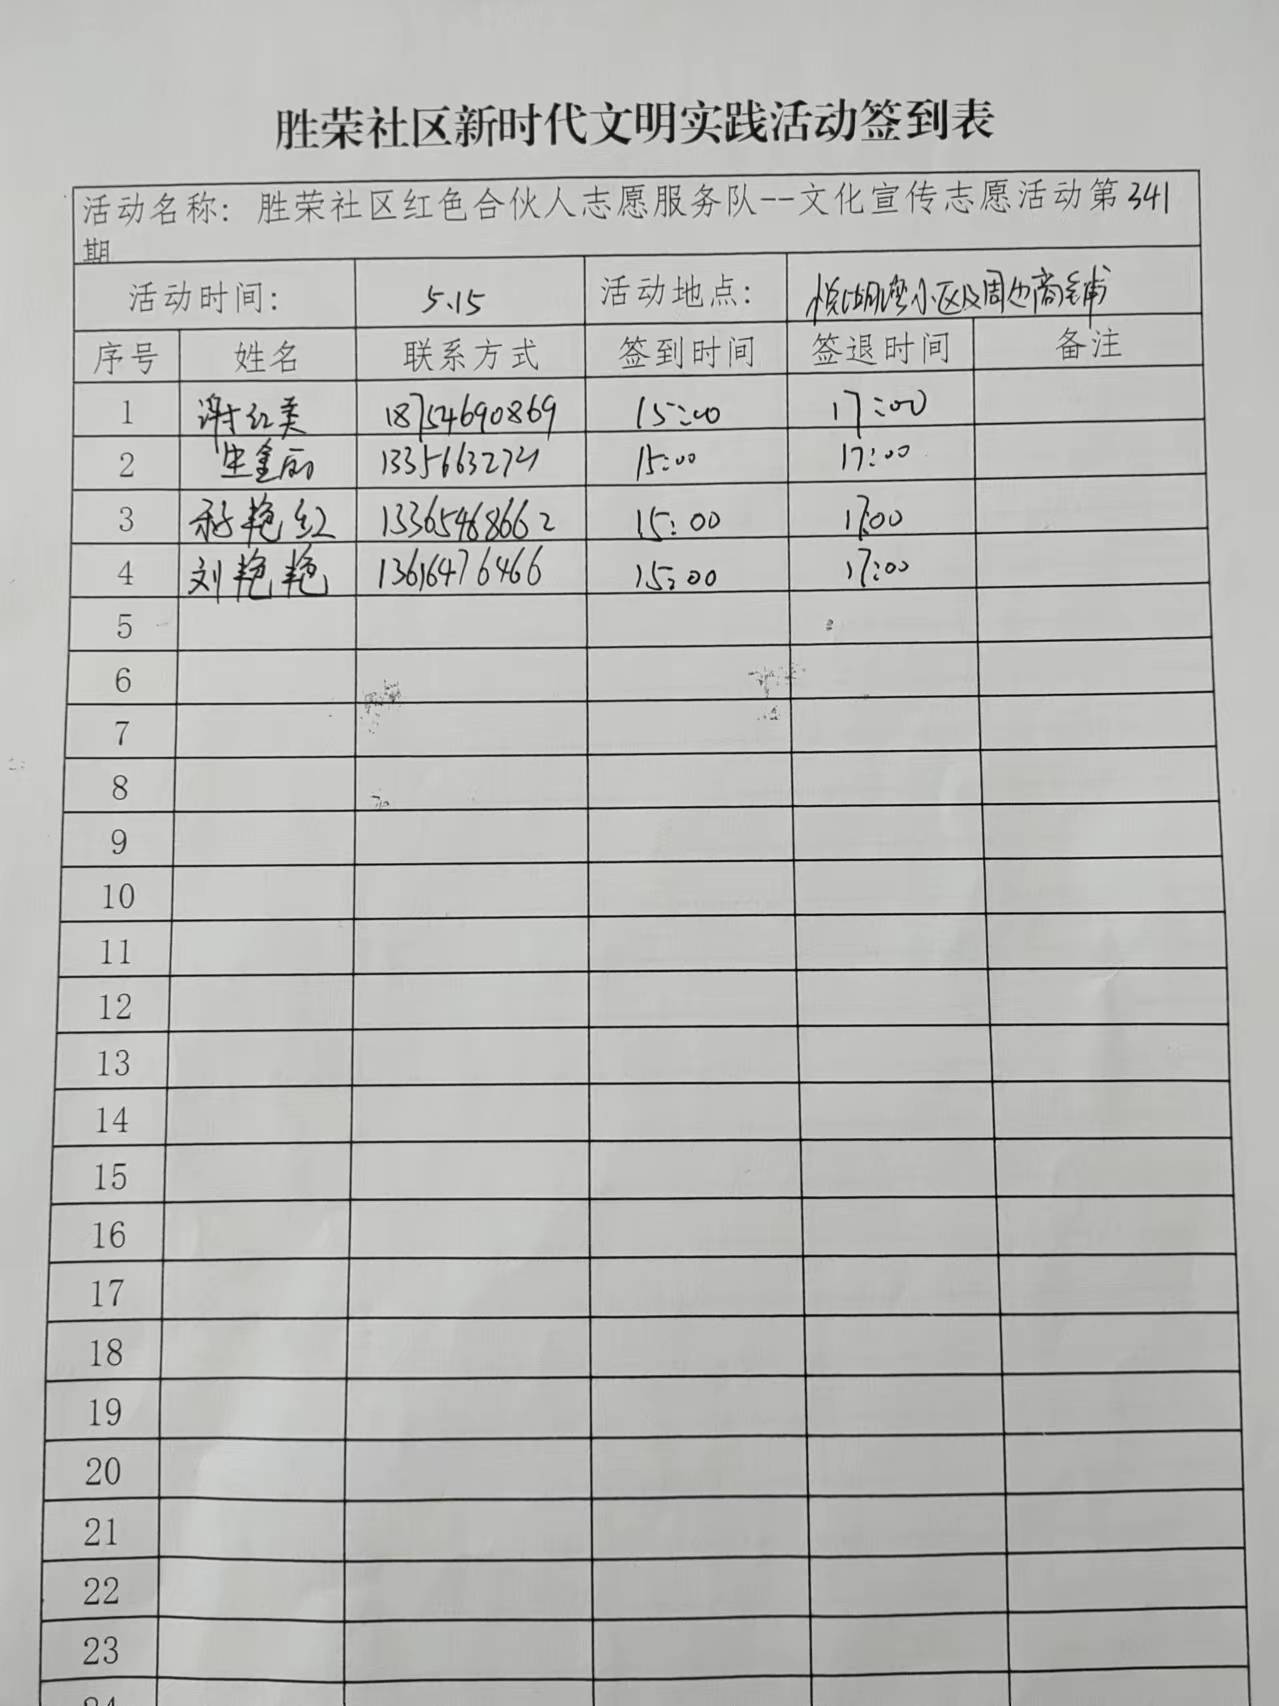 胜荣社区新时代文明实践活动签到表
活动名称：胜荣社区红色合伙人志愿服务队--文化宣传志愿活动第341
期
活动时间： 5.15 活动地点： 小区及周边商铺
序号 姓名 联系方式 签到时间 签退时间 备注
1 谢红英 18754690869 15:00 17:00
2 15:00 17:00
3 艳红 13365468662 15:00 17:00
4 刘艳艳 13616476466 15:00 17:00
5
6
7
8
9
10
11
12
13
14
15
16
17
18
19
20
21
22
23
24